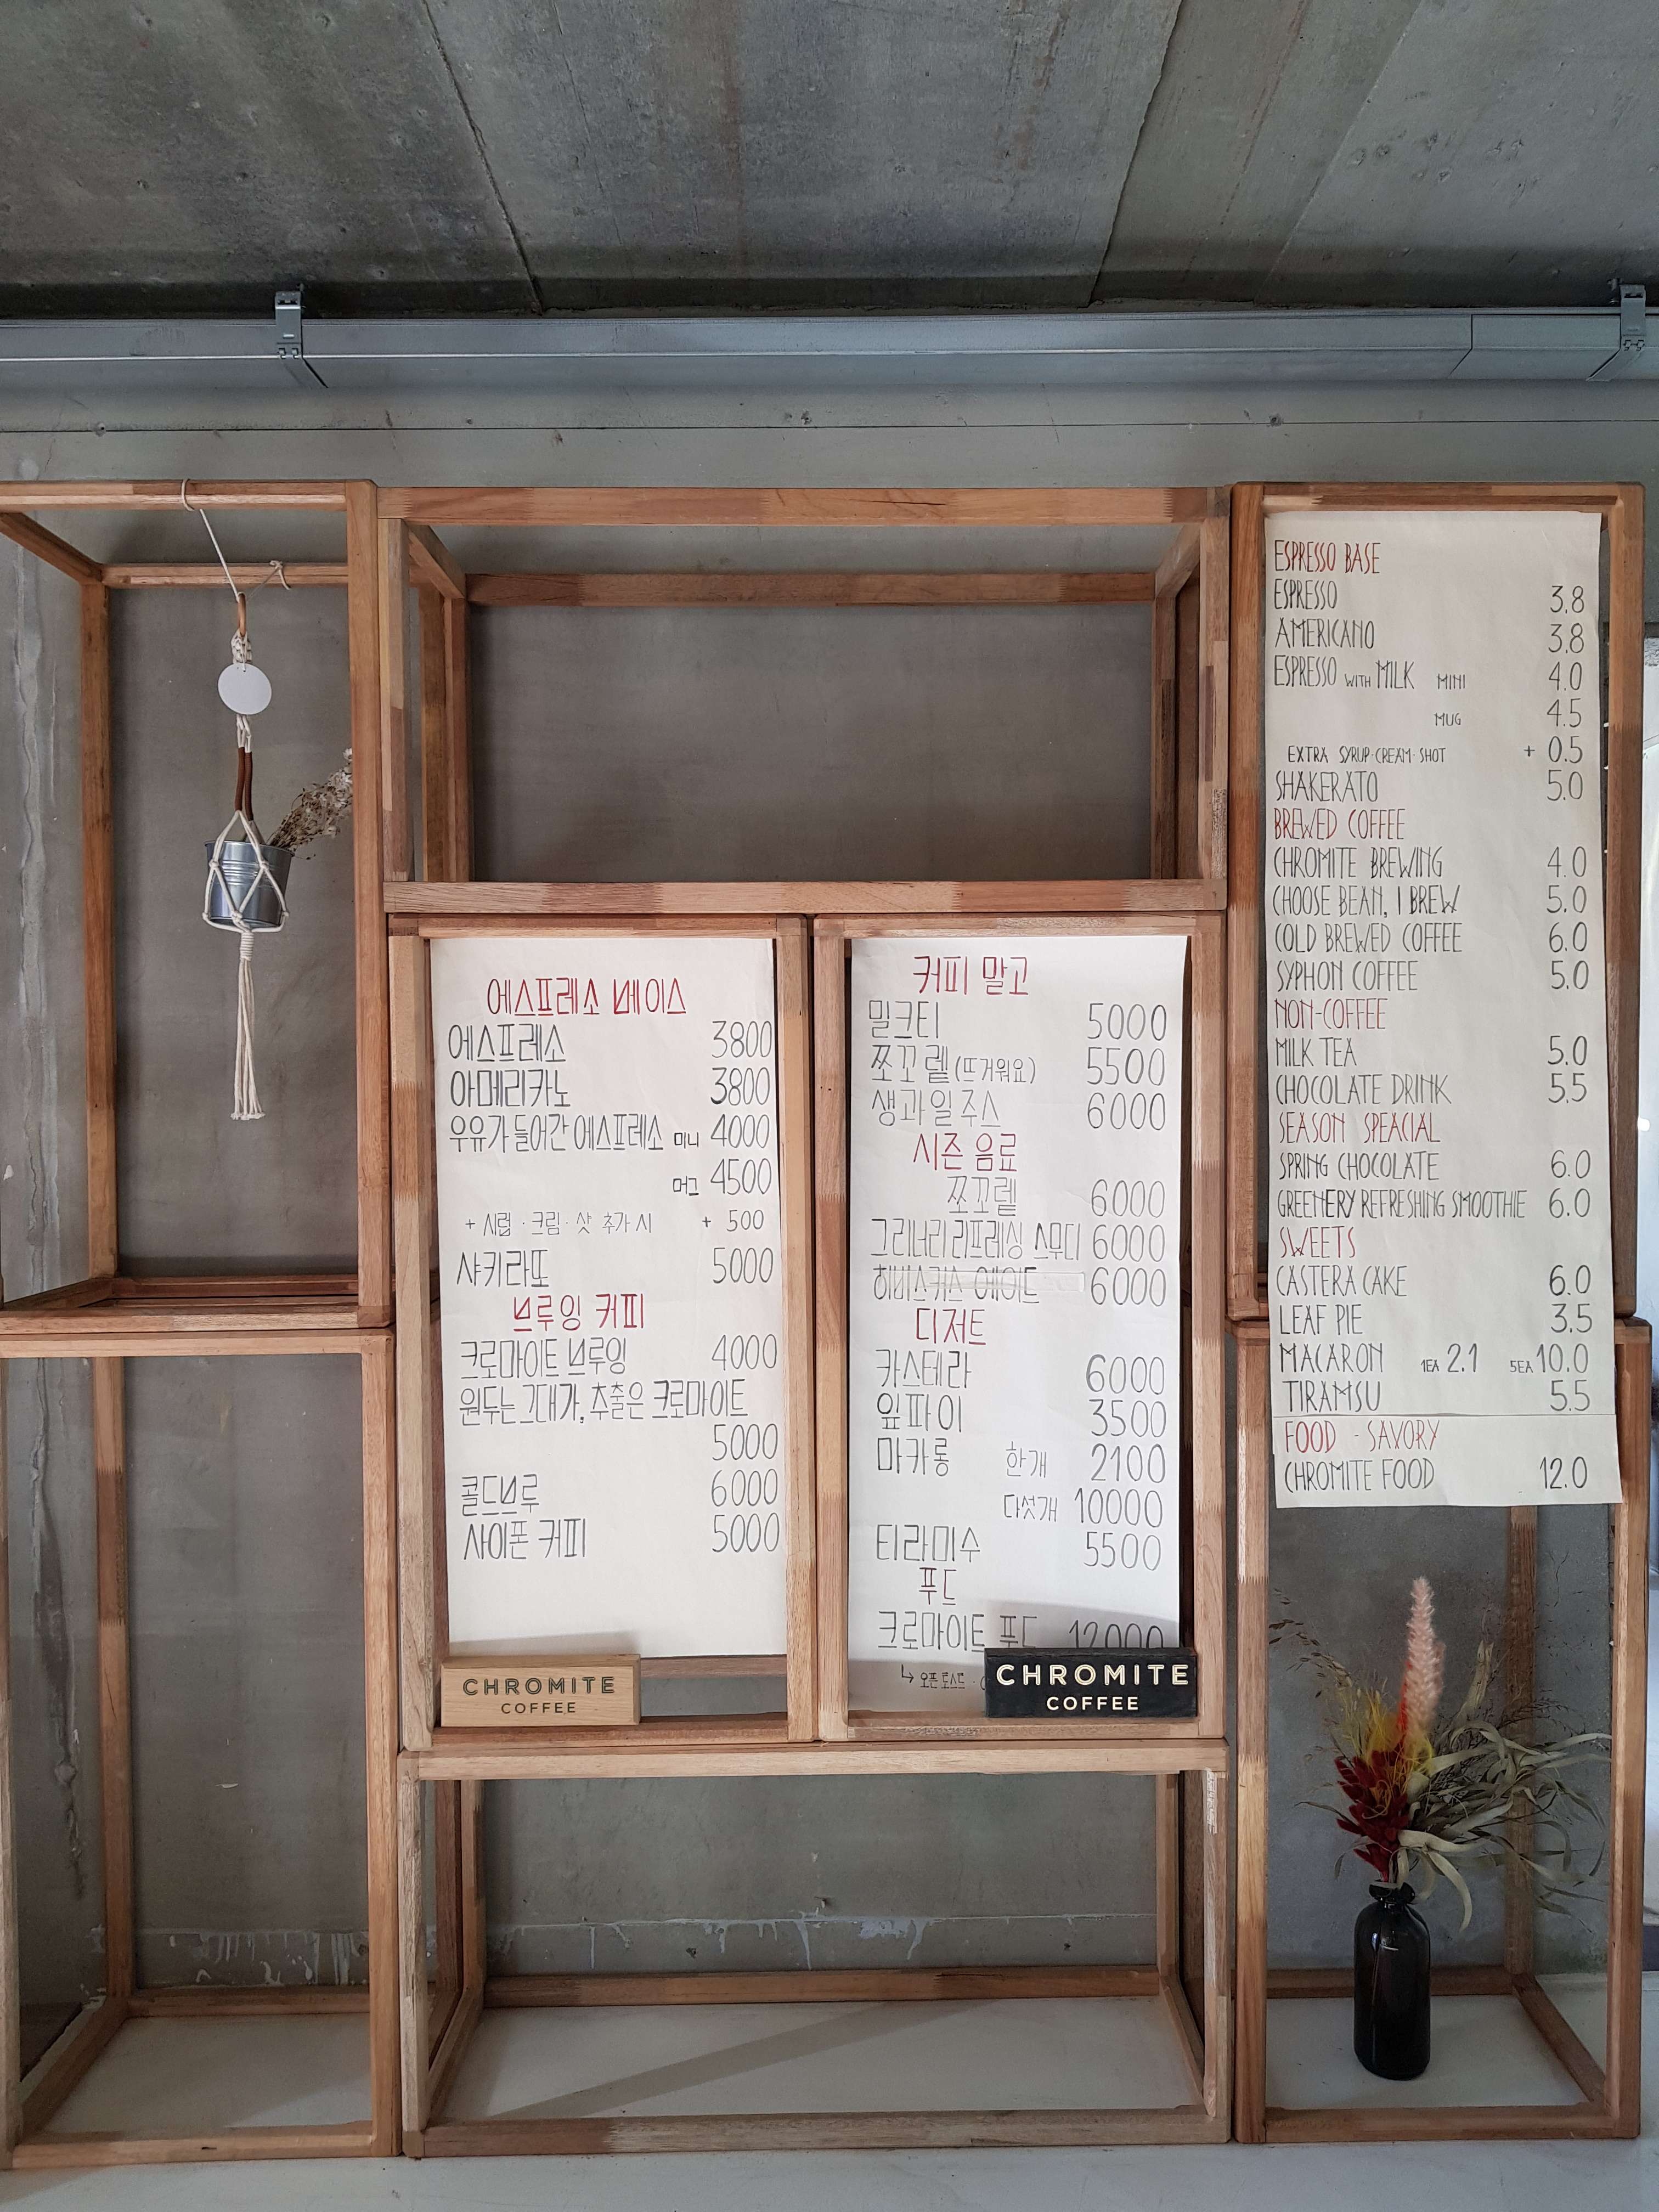 에스프레소 베이스
에스프레소 3800
아메리카노 3800
우유가 들어간 에스프레소 미니 4000
머그 4500
+ 시럽 · 크림 · 샷 추가 시 + 500
샤키라또 5000
브루잉 커피
크로마이트 브루잉 4000
원두는 그대가, 추출은 크로마이트
5000
콜드브루 6000
사이폰 커피 5000
CHROMITE
COFFEE
커피 말고
밀크티 5000
쪼꼬렡 (뜨거워요) 5500
생과일 주스 6000
시즌 음료
쪼꼬렡 6000
그리너리 리프레싱 스무디 6000
히비스커스 에이드 6000
디저트
카스테라 6000
잎파이 3500
마카롱 한개 2100
다섯개 10000
티라미수 5500
푸드
크로마이트 푸드 12000
↳ 오픈토스트 ·
CHROMITE
COFFEE
ESPRESSO BASE
ESPRESSO 3.8
AMERICANO 3.8
ESPRESSO WITH MILK MINI 4.0
MUG 4.5
EXTRA SYRUP·CREAM·SHOT + 0.5
SHAKERATO 5.0
BREWED COFFEE
CHROMITE BREWING 4.0
CHOOSE BEAN, I BREW 5.0
COLD BREWED COFFEE 6.0
SYPHON COFFEE 5.0
NON-COFFEE
MILK TEA 5.0
CHOCOLATE DRINK 5.5
SEASON SPEACIAL
SPRING CHOCOLATE 6.0
GREENERY REFRESHING SMOOTHIE 6.0
SWEETS
CASTERA CAKE 6.0
LEAF PIE 3.5
MACARON 1EA 2.1 5EA 10.0
TIRAMSU 5.5
FOOD - SAVORY
CHROMITE FOOD 12.0